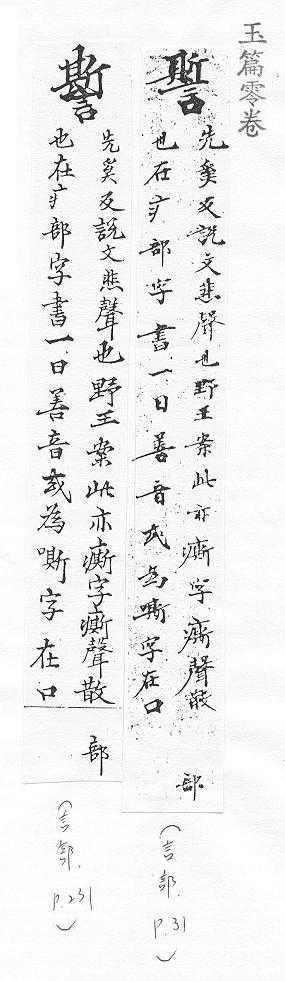 玉篇零卷
誓
先奚反說文悲聲也野王案此亦㾷字㾷聲散
也在疒部字書一曰善音或為嘶字在口
部
(言部. P.31)
誓
先奚反說文悲聲也野王案此亦㾷字㾷聲散
也在疒部字書一曰善音或為嘶字在口
部
(言部. P.231)